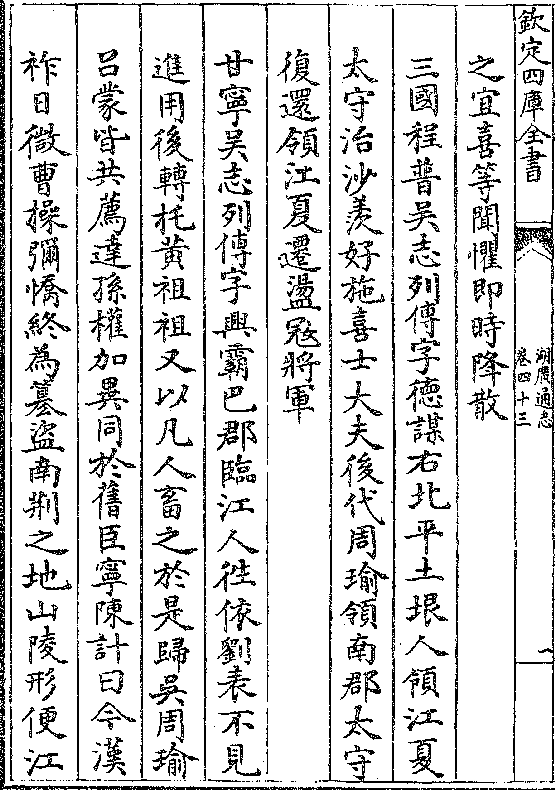 欽定四庫全書
湖廣通志
卷四十三
一
之宜喜等聞懼即時降散
三國程普吳志列傳字德謀右北平土垠人領江夏
太守治沙羡好施喜士大夫後代周瑜領南郡太守
復還領江夏遷盪寇將軍
甘寧吳志列傳字興霸巴郡臨江人往依劉表不見
進用後轉托黃祖祖又以凡人畜之於是歸吳周瑜
呂蒙皆共薦達孫權加異同於舊臣寧陳計曰今漢
祚日微曹操彌憍終為簒盜南荆之地山陵形便江